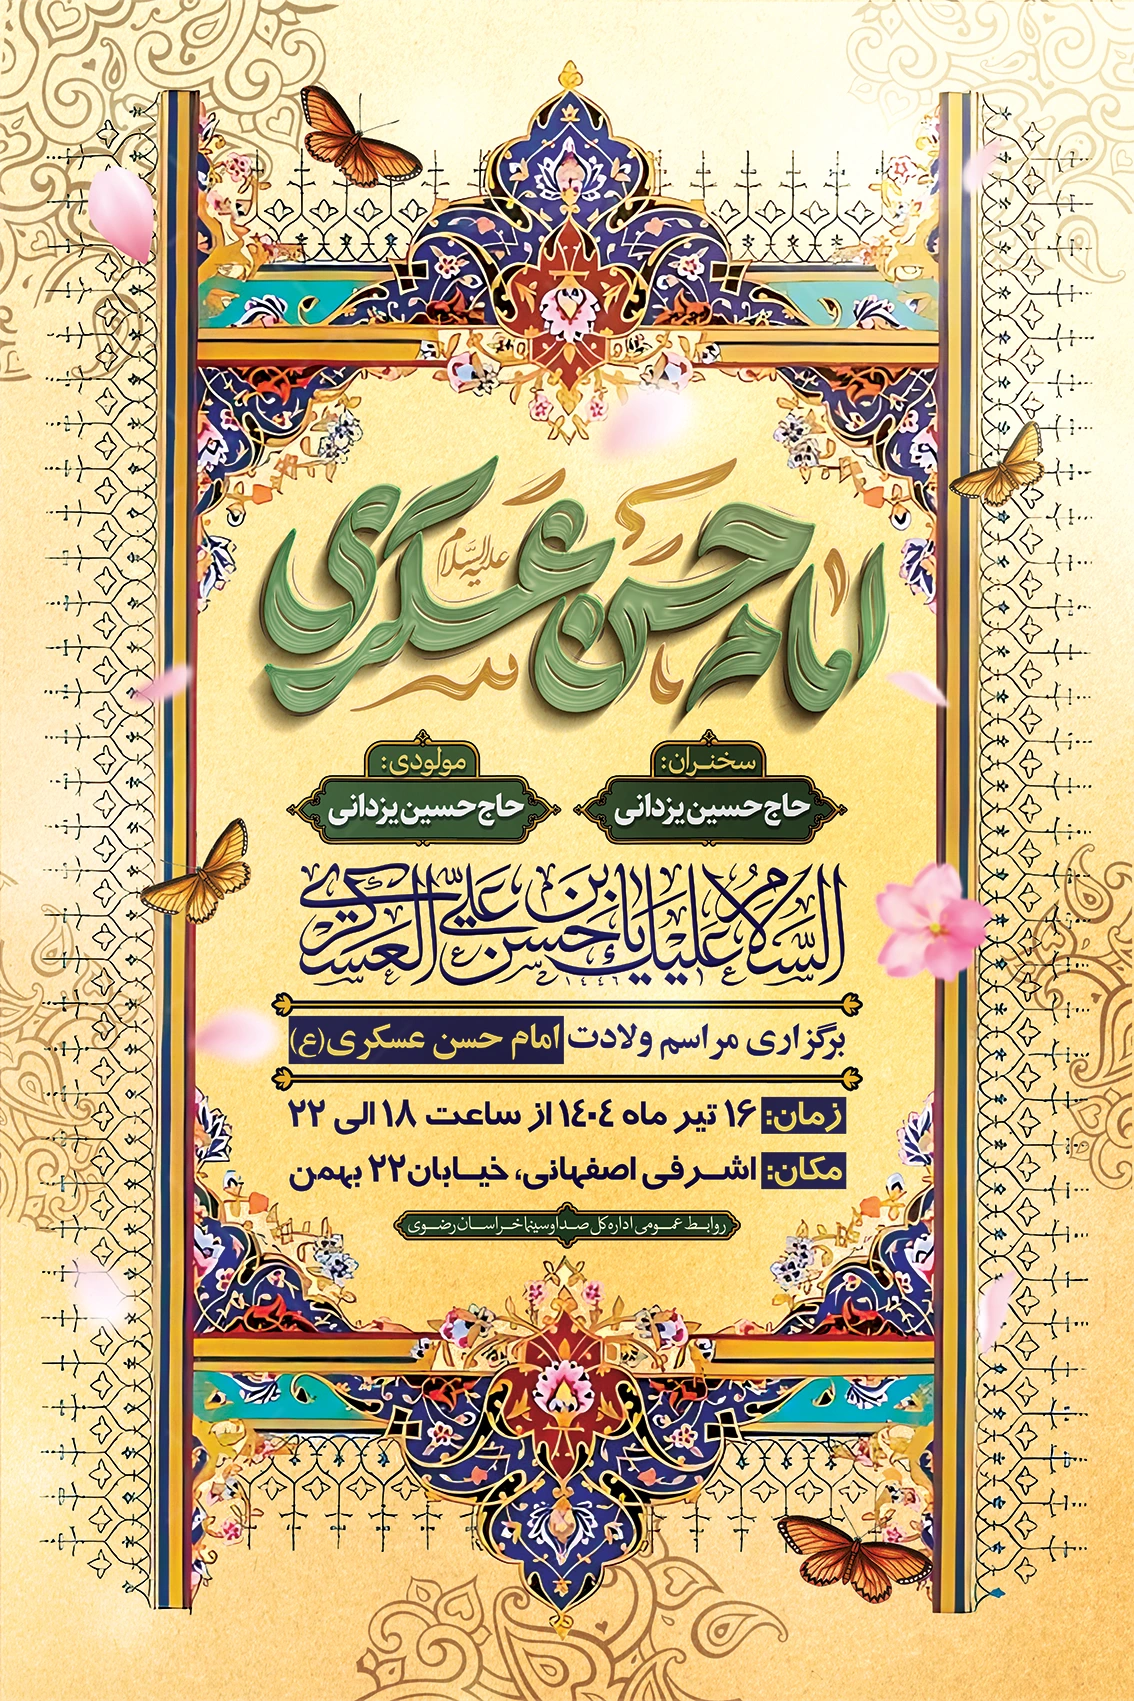 امام حسن عسکری
علیه السلام
سخنران:
حاج حسین یزدانی
مولودی:
حاج حسین یزدانی
السلام علیک یا حسن بن علی العسکری
۱۴۴۶
برگزاری مراسم ولادت امام حسن عسکری(ع)
زمان: ۱۶ تیر ماه ۱۴۰۴ از ساعت ۱۸ الی ۲۲
مکان: اشرفی اصفهانی، خیابان ۲۲ بهمن
روابط عمومی اداره کل صدا و سیما خراسان رضوی